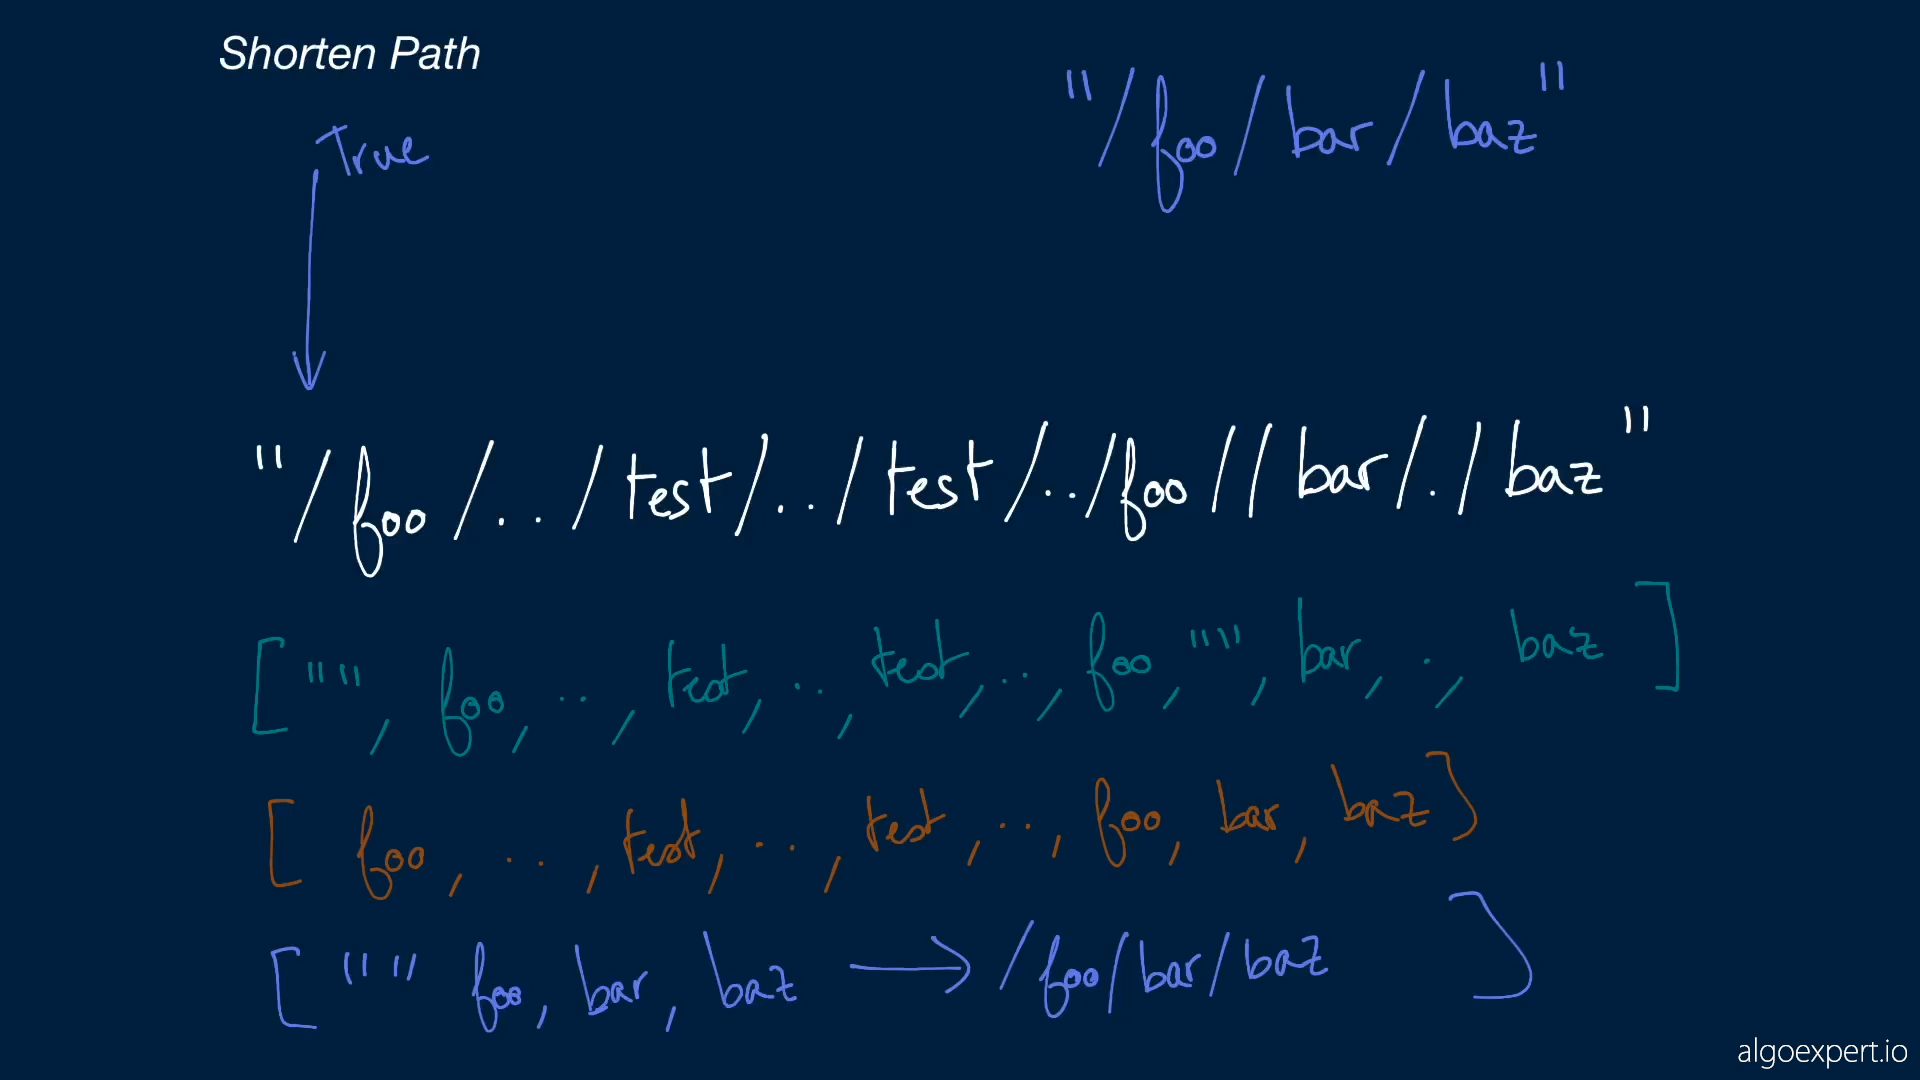 Shorten Path
"/foo/bar/baz"
True
"/foo/../test/../test/../foo//bar/./baz"
["", foo, .., test, .., test, .., foo, "", bar, ., baz]
[foo, .., test, .., test, .., foo, bar, baz]
["" foo, bar, baz → /foo/bar/baz ]
algoexpert.io